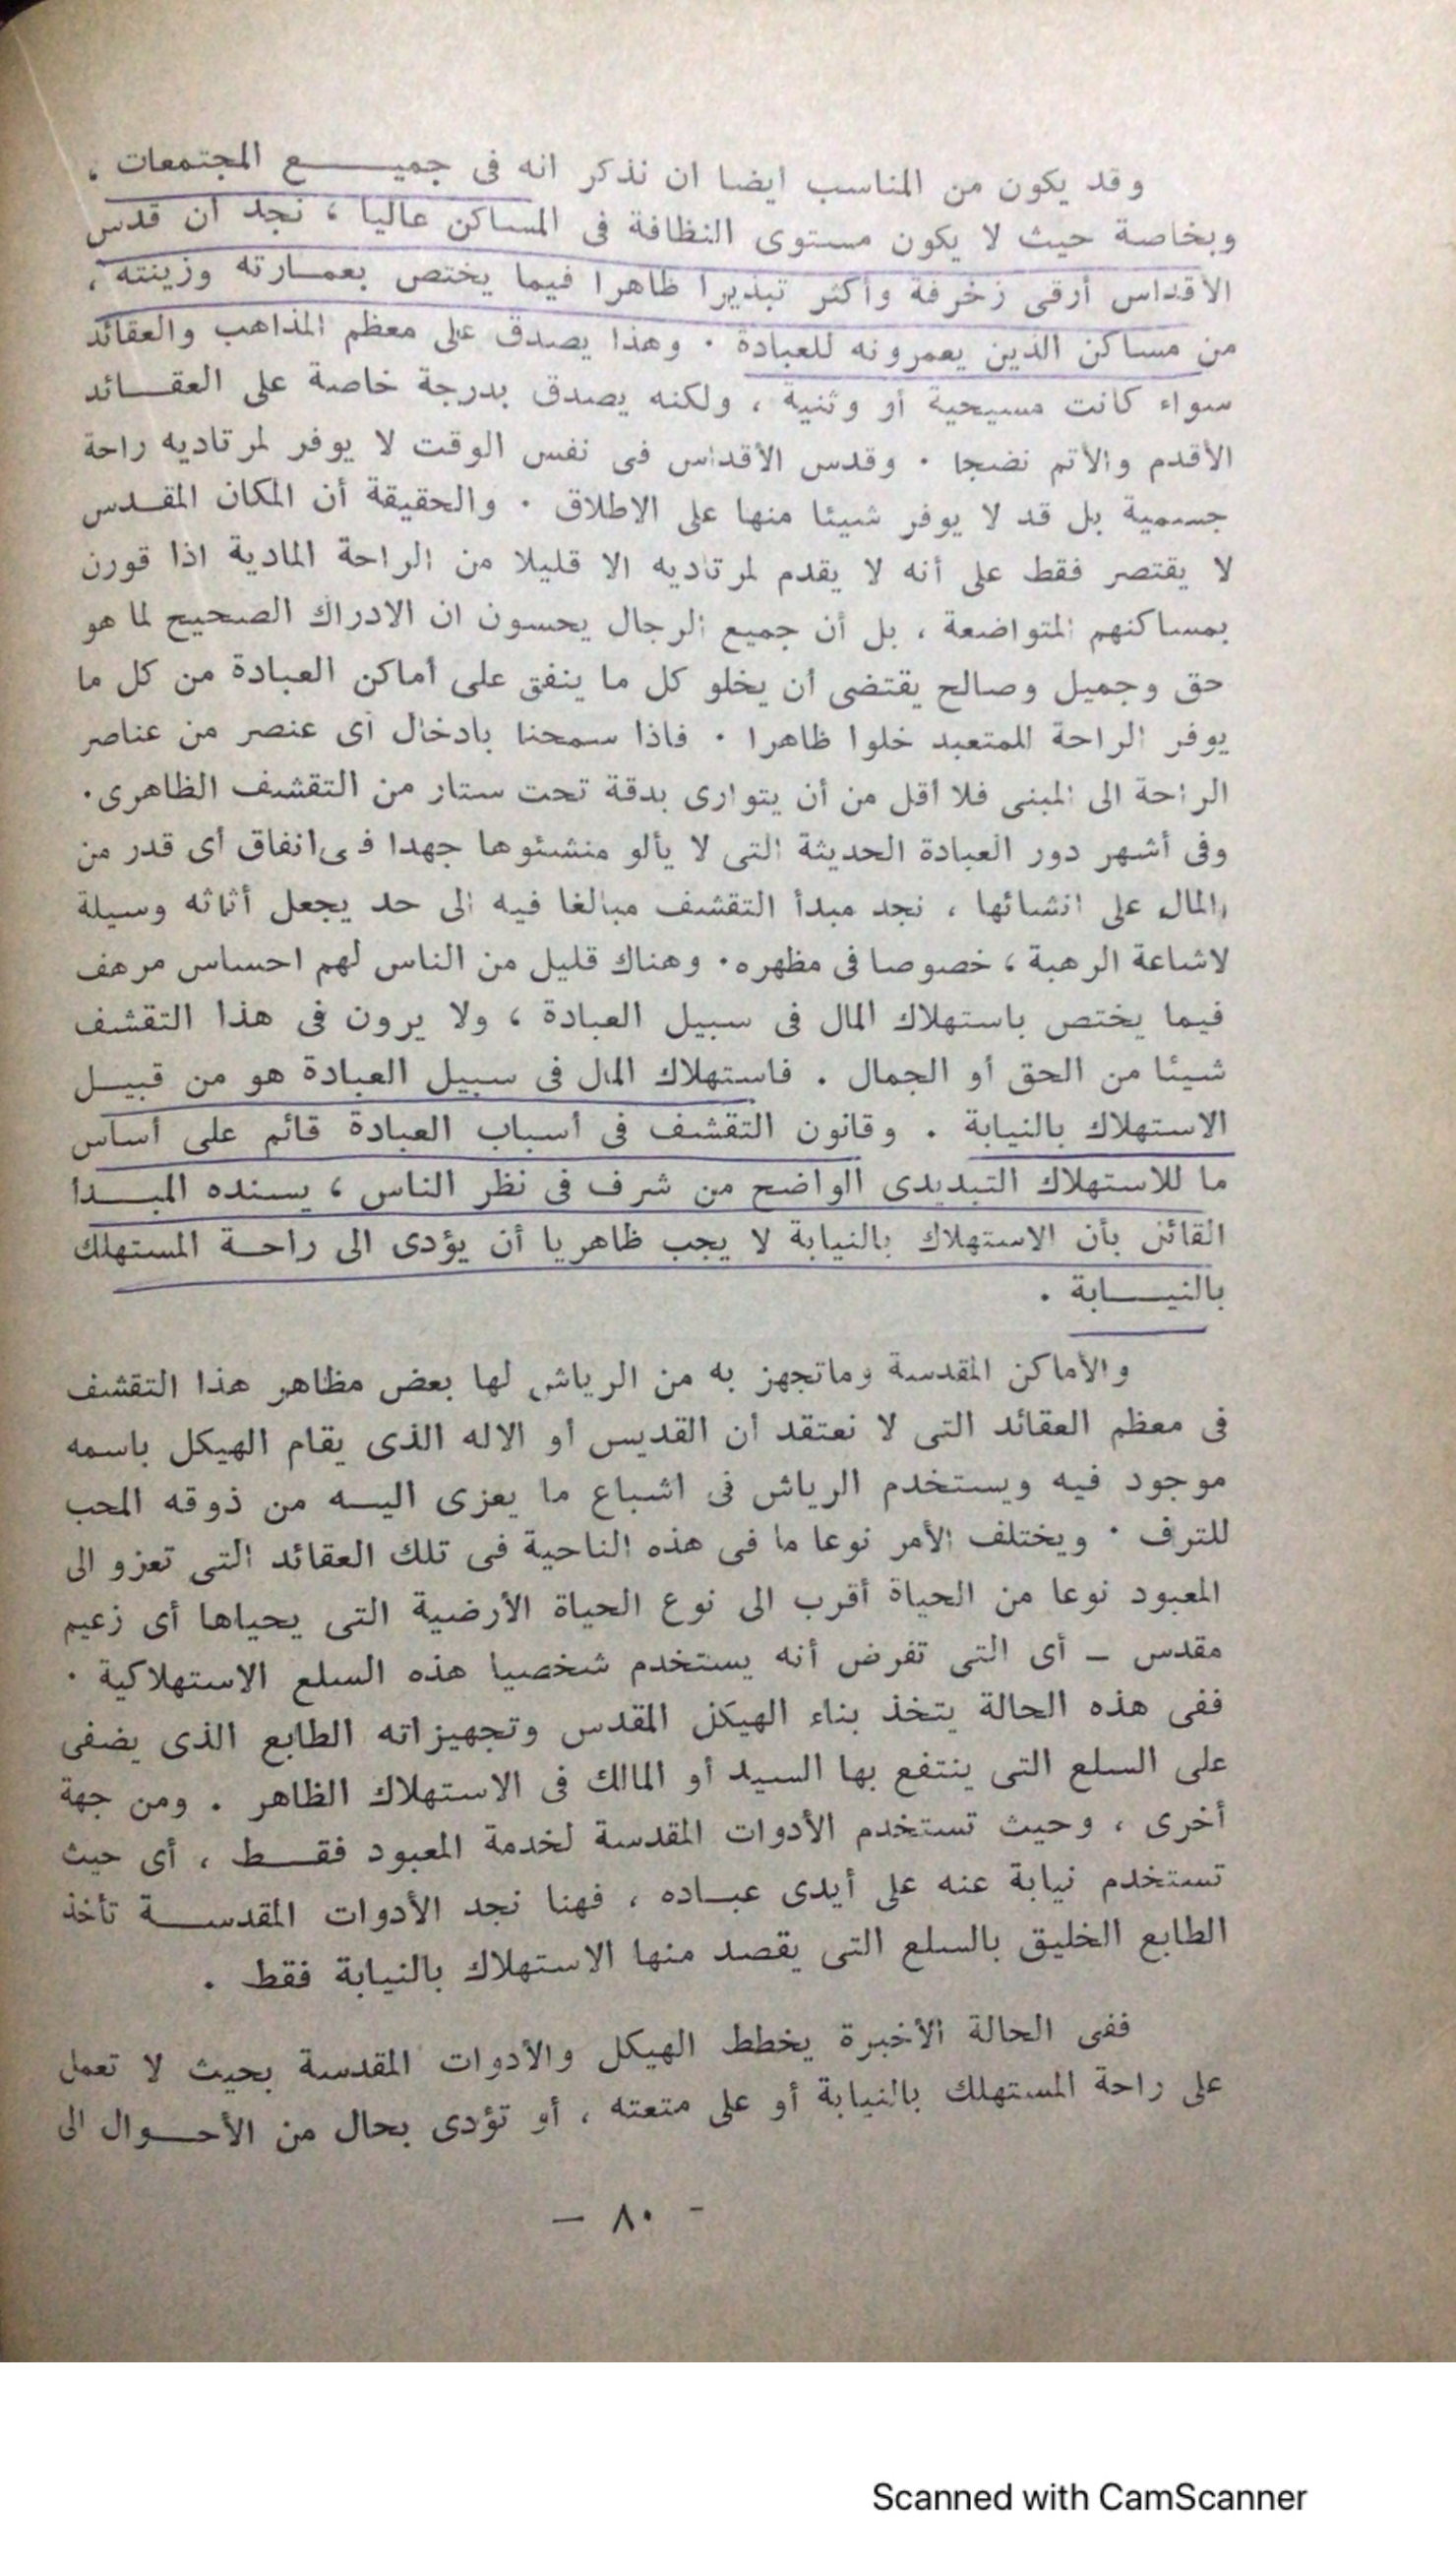 وقد يكون من المناسب ايضا ان نذكر انه فى جميـــــع المجتمعات ،
وبخاصة حيث لا يكون مستوى النظافة فى المساكن عاليا ، نجد ان قدس
الأقداس أرقى زخرفة وأكثر تبذيرا ظاهرا فيما يختص بعمـارته وزينته ،
من مساكن الذين يعمرونه للعبادة ٠ وهذا يصدق على معظم المذاهب والعقائد
سواء كانت مسيحية أو وثنية ، ولكنه يصدق بدرجة خاصة على العقـــائد
الأقدم والأتم نضجا ٠ وقدس الأقداس فى نفس الوقت لا يوفر لمرتاديه راحة
جسمية بل قد لا يوفر شيئا منها على الاطلاق ٠ والحقيقة أن المكان المقـدس
لا يقتصر فقط على أنه لا يقدم لمرتاديه الا قليلا من الراحة المادية اذا قورن
بمساكنهم المتواضعة ، بل أن جميع الرجال يحسون ان الادراك الصحيح لما هو
حق وجميل وصالح يقتضى أن يخلو كل ما ينفق على أماكن العبادة من كل ما
يوفر الراحة للمتعبد خلوا ظاهرا ٠ فاذا سمحنا بادخال أى عنصر من عناصر
الراحة الى المبنى فلا أقل من أن يتوارى بدقة تحت ستار من التقشف الظاهرى٠
وفى أشهر دور العبادة الحديثة التى لا يألو منشئوها جهدا فى انفاق أى قدر من
المال على انشائها ، نجد مبدأ التقشف مبالغا فيه الى حد يجعل أثاثه وسيلة
لاشاعة الرهبة ، خصوصا فى مظهره٠ وهناك قليل من الناس لهم احساس مرهف
فيما يختص باستهلاك المال فى سبيل العبادة ، ولا يرون فى هذا التقشف
شيئا من الحق أو الجمال ٠ فاستهلاك المال فى سبيل العبادة هو من قبيــل
الاستهلاك بالنيابة ٠ وقانون التقشف فى أسباب العبادة قائم على أساس
ما للاستهلاك التبديدى الواضح من شرف فى نظر الناس ، يسنده المبـــدا
القائل بأن الاستهلاك بالنيابة لا يجب ظاهريا أن يؤدى الى راحـة المستهلك
بالنيـــابة ٠
والأماكن المقدسة وماتجهز به من الرياش لها بعض مظاهر هذا التقشف
فى معظم العقائد التى لا نعتقد أن القديس أو الاله الذى يقام الهيكل باسمه
موجود فيه ويستخدم الرياش فى اشباع ما يعزى اليـه من ذوقه المحب
للترف ٠ ويختلف الأمر نوعا ما فى هذه الناحية فى تلك العقائد التى تعزو الى
المعبود نوعا من الحياة أقرب الى نوع الحياة الأرضية التى يحياها أى زعيم
مقدس – أى التى تفرض أنه يستخدم شخصيا هذه السلع الاستهلاكية ٠
ففى هذه الحالة يتخذ بناء الهيكل المقدس وتجهيزاته الطابع الذى يضفى
على السلع التى ينتفع بها السيد أو المالك فى الاستهلاك الظاهر ٠ ومن جهة
أخرى ، وحيث تستخدم الأدوات المقدسة لخدمة المعبود فقـــط ، أى حيث
تستخدم نيابة عنه على أيدى عبـاده ، فهنا نجد الأدوات المقدســـة تأخذ
الطابع الخليق بالسلع التى يقصد منها الاستهلاك بالنيابة فقط ٠
ففى الحالة الأخيرة يخطط الهيكل والأدوات المقدسة بحيث لا تعمل
على راحة المستهلك بالنيابة أو على متعته ، أو تؤدى بحال من الأحـــوال الى
– ٨٠ –
Scanned with CamScanner